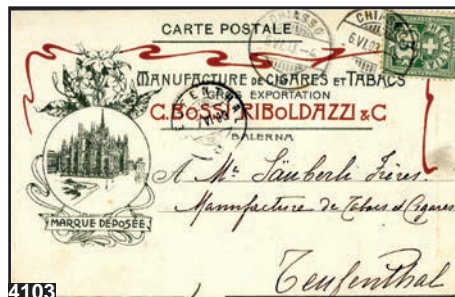 CARTE POSTALE
CHIASSO
6 VI.03
MANUFACTURE DE CIGARES ET TABACS
GROS EXPORTATION
C. BOSSI RIBOLDAZZI & C
BALERNA
MARQUE DÉPOSÉE
A Mr. Säuberli Frères.
Manufacture de Tabacs et Cigares
Teufenthal
4103